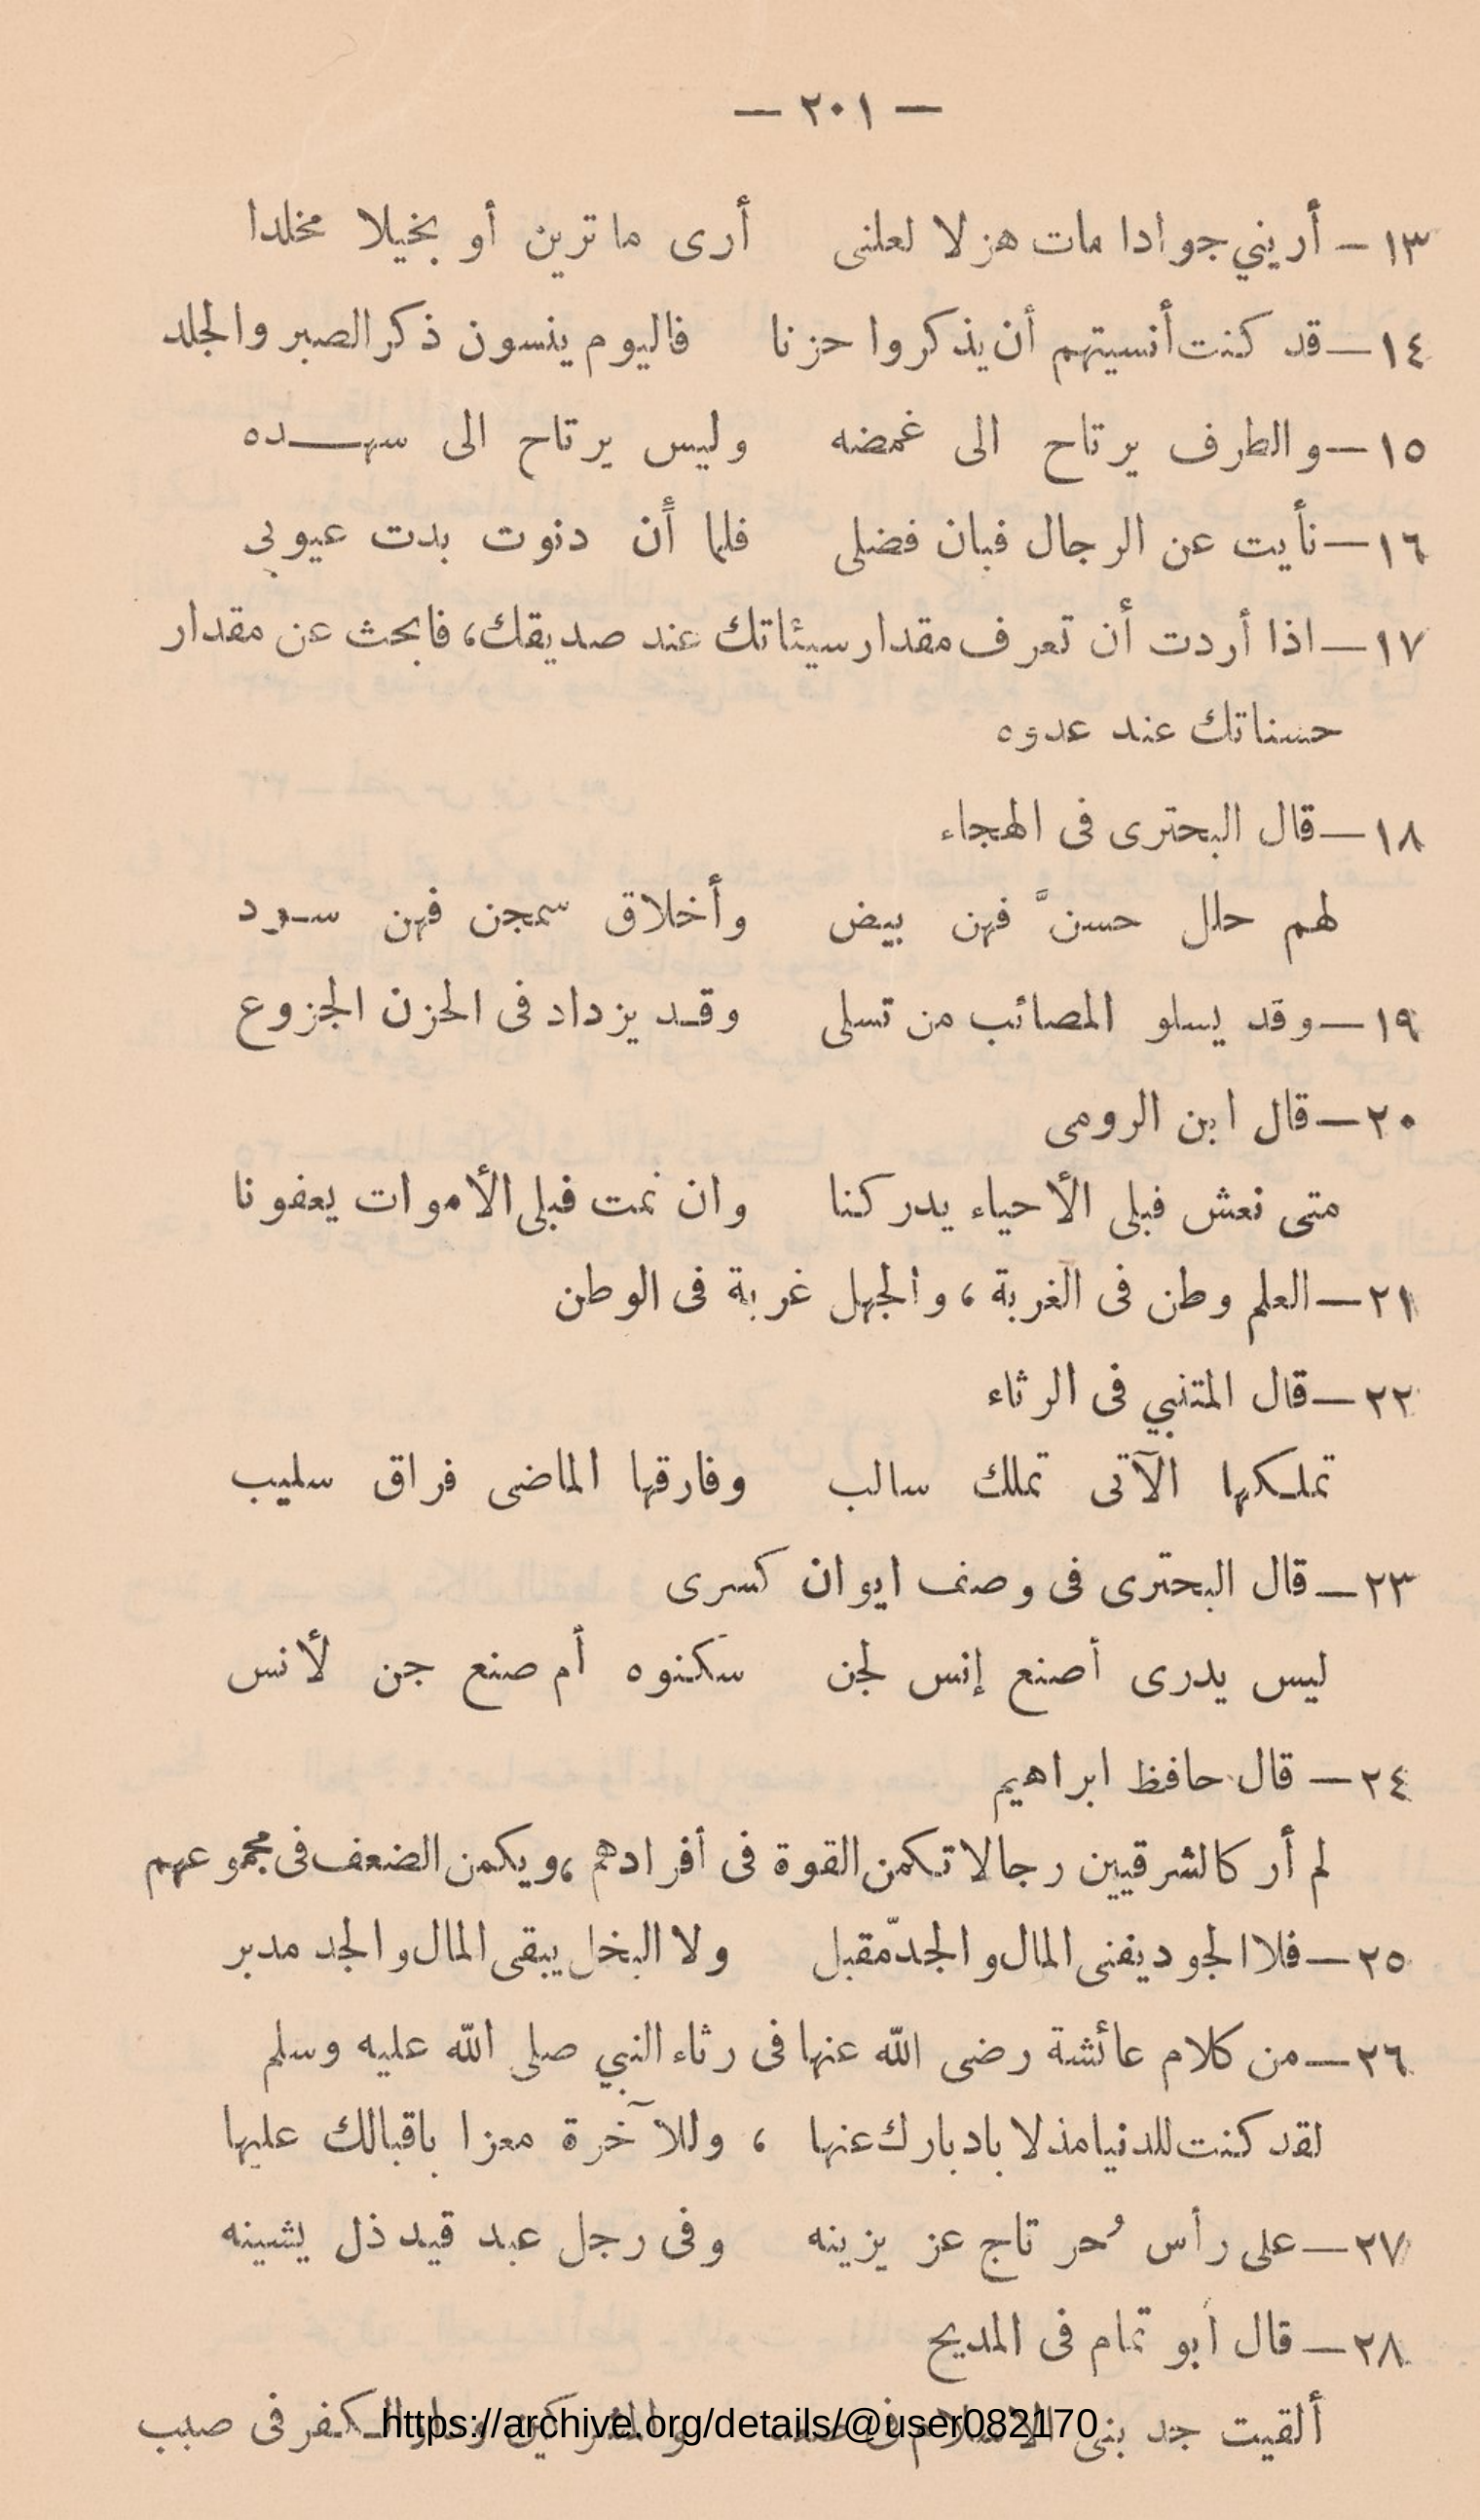 — ٢٠١ —
١٣ — أريني جوادا مات هزلا لعلنى أرى ما ترين أو بخيلا مخلدا
١٤ — قد كنت أنسيتهم أن يذكروا حزنا فاليوم ينسون ذكر الصبر والجلد
١٥ — والطرف يرتاح الى غمضه وليس يرتاح الى سهـــده
١٦ — نأيت عن الرجال فبان فضلى فلما أن دنوت بدت عيوبي
١٧ — اذا أردت أن تعرف مقدار سيئاتك عند صديقك، فابحث عن مقدار
حسناتك عند عدوه
١٨ — قال البحترى فى الهجاء
لهم حلل حسنَّ فهن بيض وأخلاق سمجن فهن سـود
١٩ — وقد يسلو المصائب من تسلى وقـد يزداد فى الحزن الجزوع
٢٠ — قال ابن الرومى
متى نعش فبلى الأحياء يدركنا وان نمت فبلى الأموات يعفونا
٢١ — العلم وطن فى الغربة ، والجهل غربة فى الوطن
٢٢ — قال المتنبي فى الرثاء
تملـكها الآتى تملك سالب وفارقها الماضى فراق سليب
٢٣ — قال البحترى فى وصف ايوان كسرى
ليس يدرى أصنع إنس لجن سكنوه أم صنع جن لأنس
٢٤ — قال حافظ ابراهيم
لم أر كالشرقيين رجالا تـكمن القوة فى أفرادهم ، ويكمن الضعف فى مجموعهم
٢٥ — فلا الجود يفنى المال والجدّ مقبل ولا البخل يبقى المال والجد مدبر
٢٦ — من كلام عائشة رضى الله عنها فى رثاء النبي صلى الله عليه وسلم
لقد كنت للدنيا مذلا بادبارك عنها ، وللآخرة معزا باقبالك عليها
٢٧ — على رأس حُر تاج عز يزينه وفى رجل عبد قيد ذل يشينه
٢٨ — قال أبو تمام فى المديح
ألقيت جد بنى الاسلام فى صعد والمشركين ودار الـكفر فى صبب
https://archive.org/details/@user082170